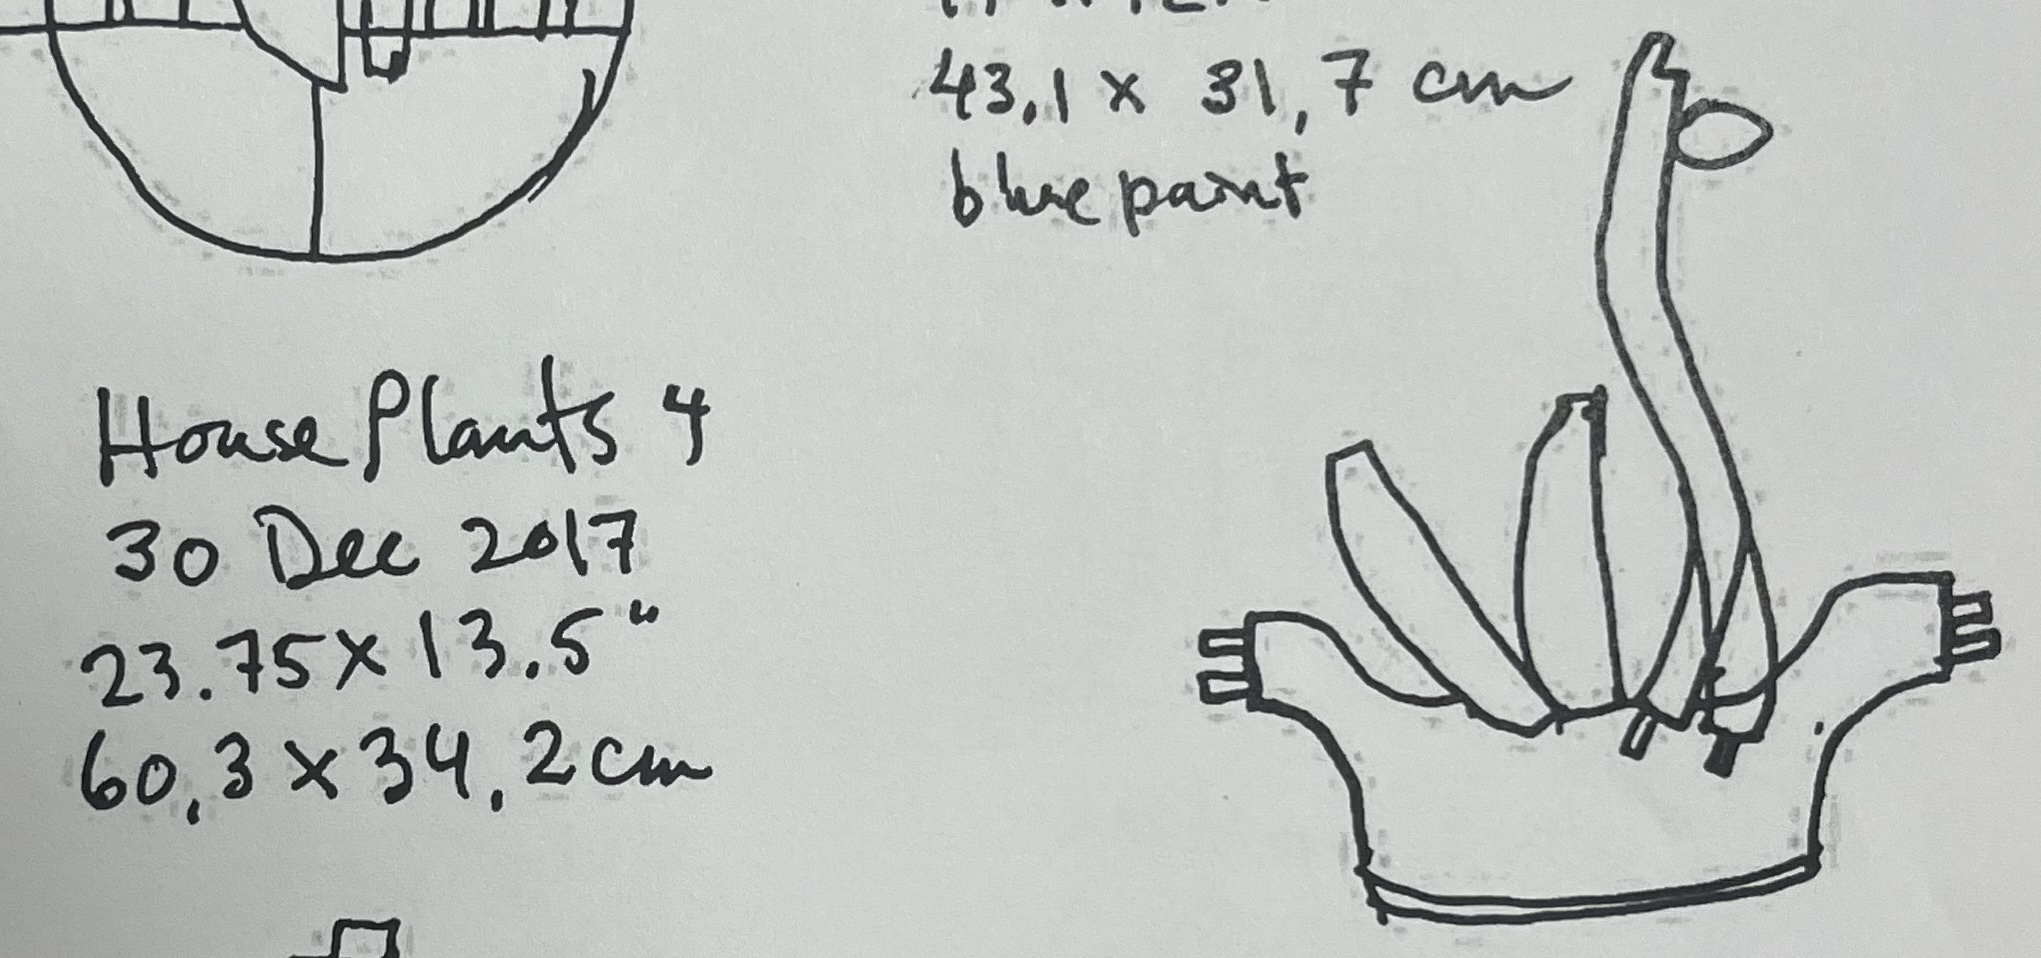 43,1 x 31,7 cm
blue paint
House Plants 4
30 Dec 2017
23.75 x 13.5"
60,3 x 34,2 cm